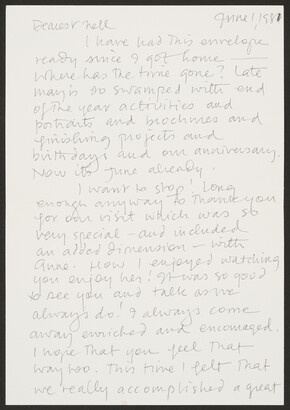 June 1 1981
Dearest Nell
I have had this envelope
ready since I got home —
where has the time gone? Late
May is so swamped with end
of the year activities and
portraits and brochures and
finishing projects and
birthdays and our anniversary.
Now its June already.
I want to stop! Long
enough anyway to thank you
for our visit which was so
very special – and included
an added dimension – with
Anne. How I enjoyed watching
you enjoy her! It was so good
to see you and talk as we
always do! I always come
away enriched and encouraged.
I hope that you feel that
way too. This time I felt that
we really accomplished a great